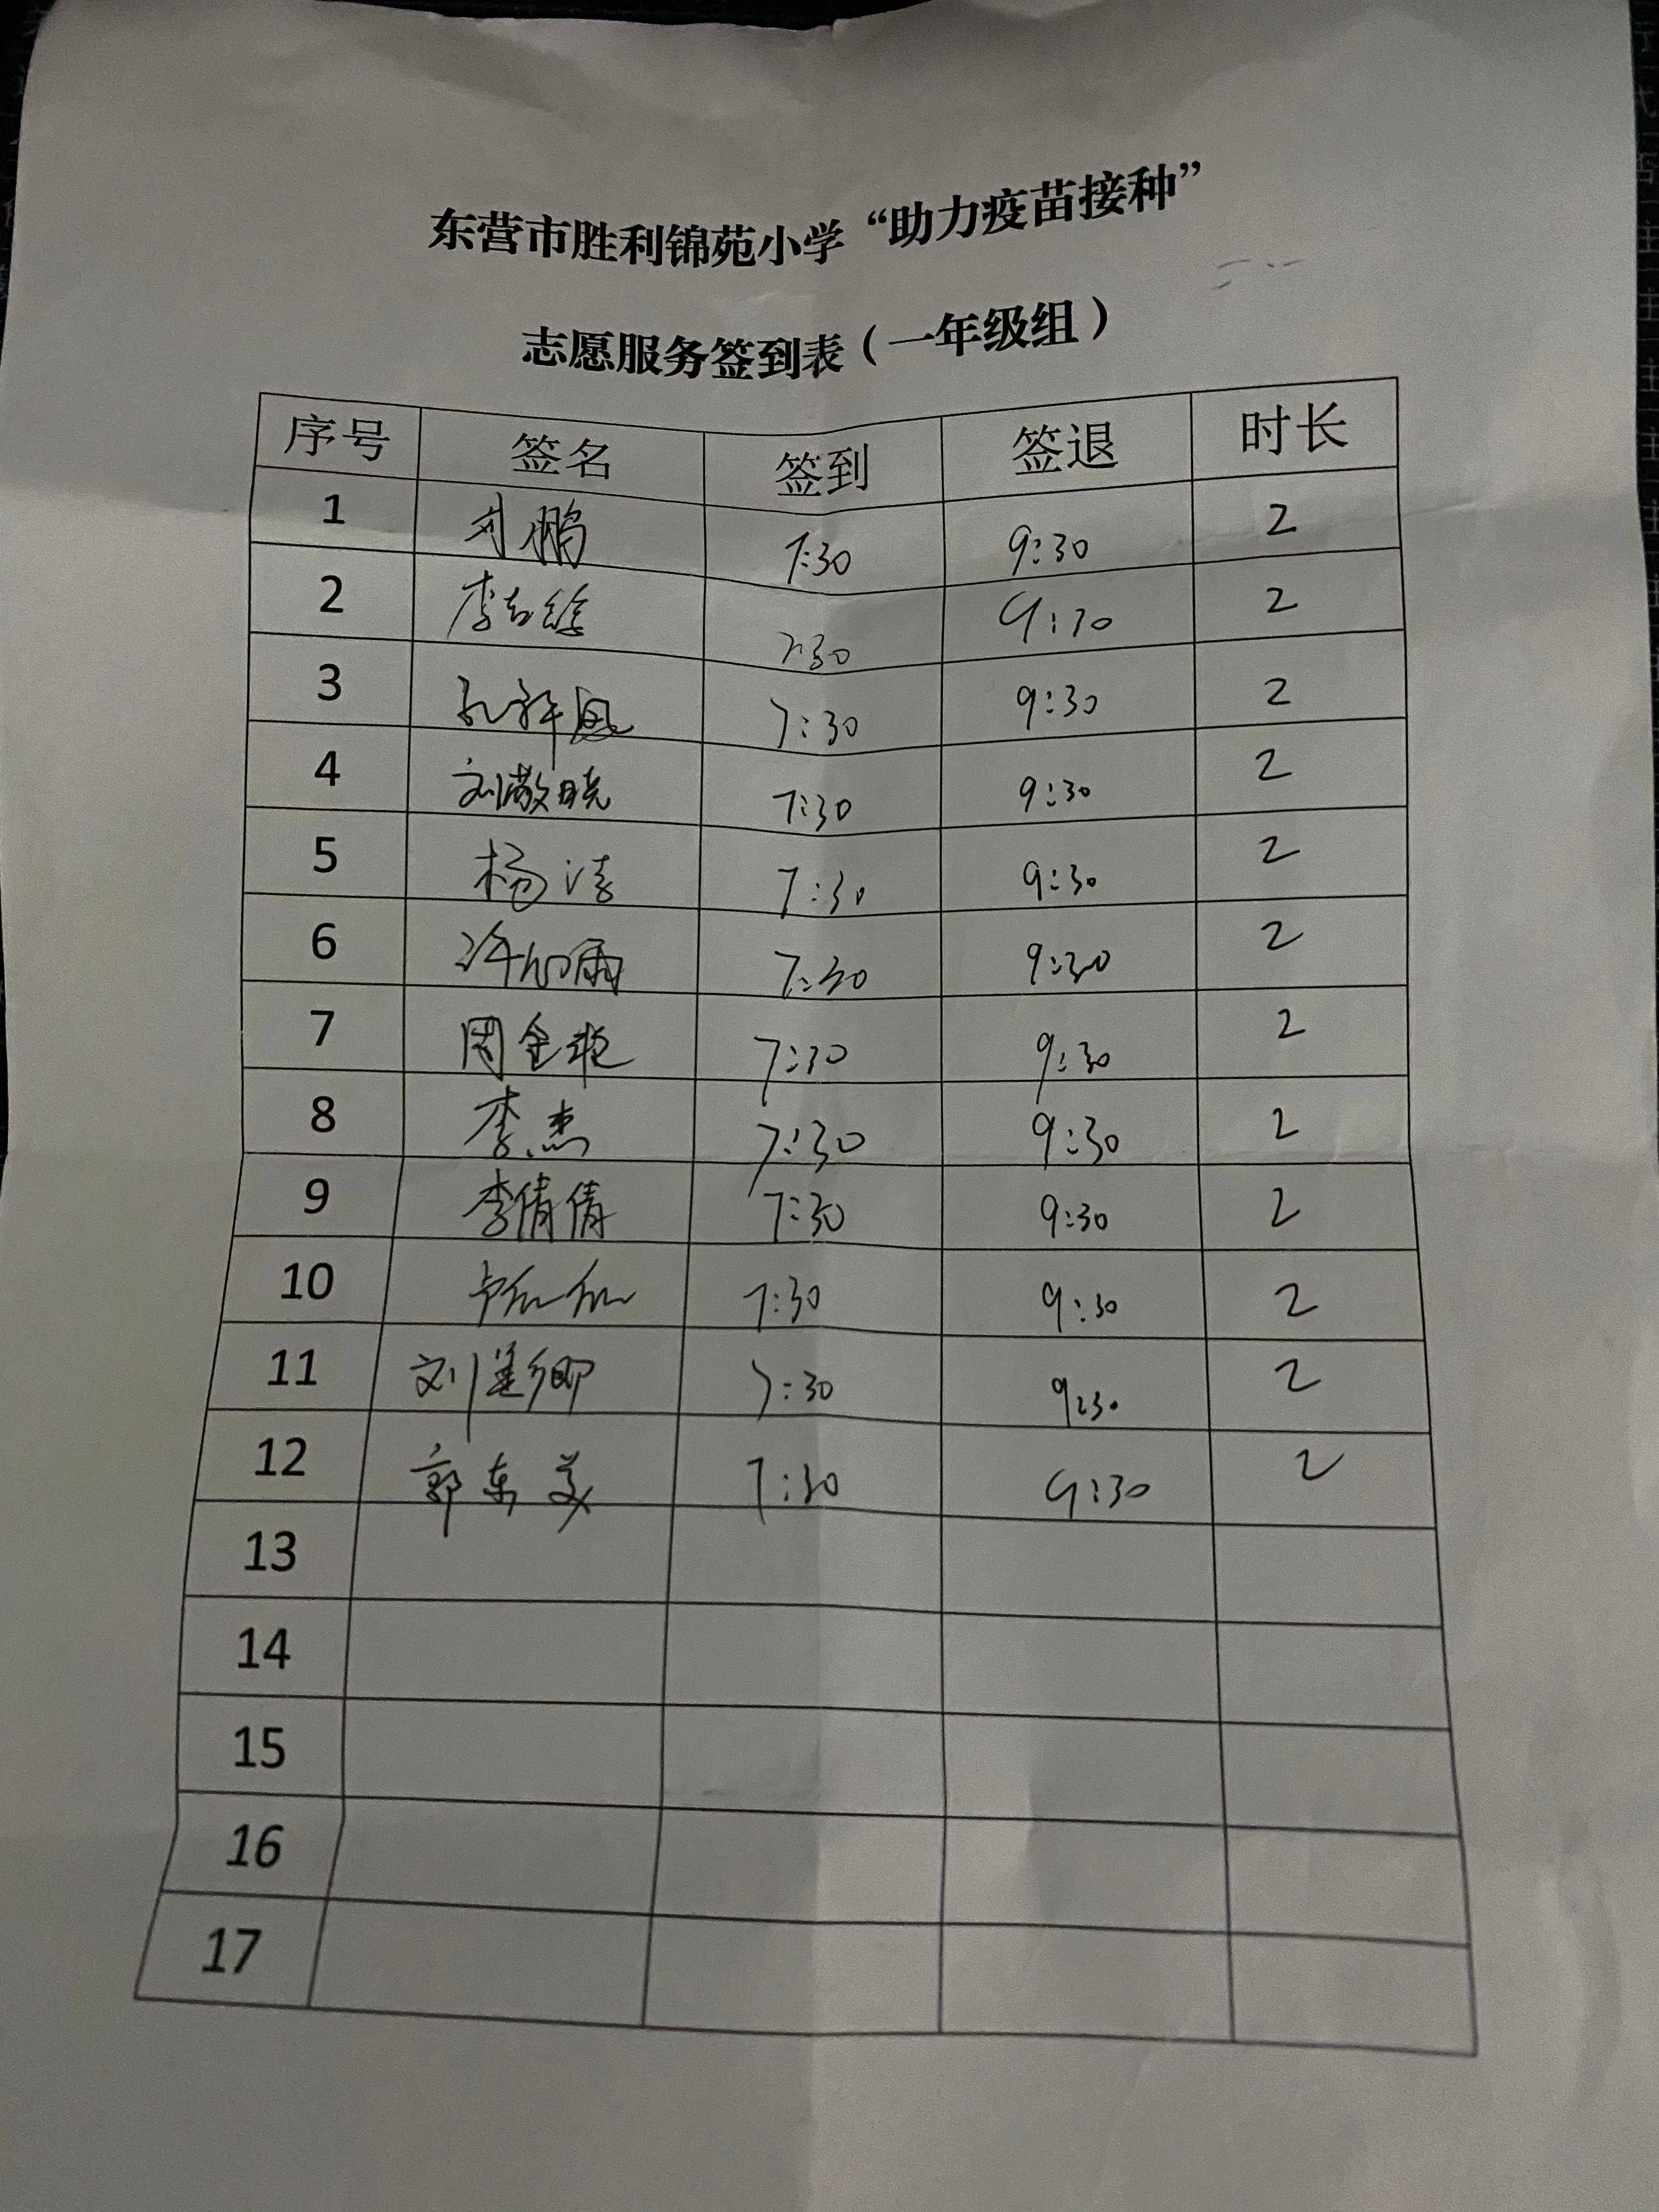 东营市胜利锦苑小学“助力疫苗接种”
志愿服务签到表（一年级组）
序号 签名 签到 签退 时长
1 刘鹏 7:30 9:30 2
2 李 7:30 9:30 2
3 孔祥 7:30 9:30 2
4 刘敬晓 7:30 9:30 2
5 杨涛 7:30 9:30 2
6 许 雨 7:30 9:30 2
7 周金艳 7:30 9:30 2
8 李杰 7:30 9:30 2
9 李倩倩 7:30 9:30 2
10 7:30 9:30 2
11 刘 卿 7:30 9:30 2
12 郭东美 7:30 9:30 2
13
14
15
16
17